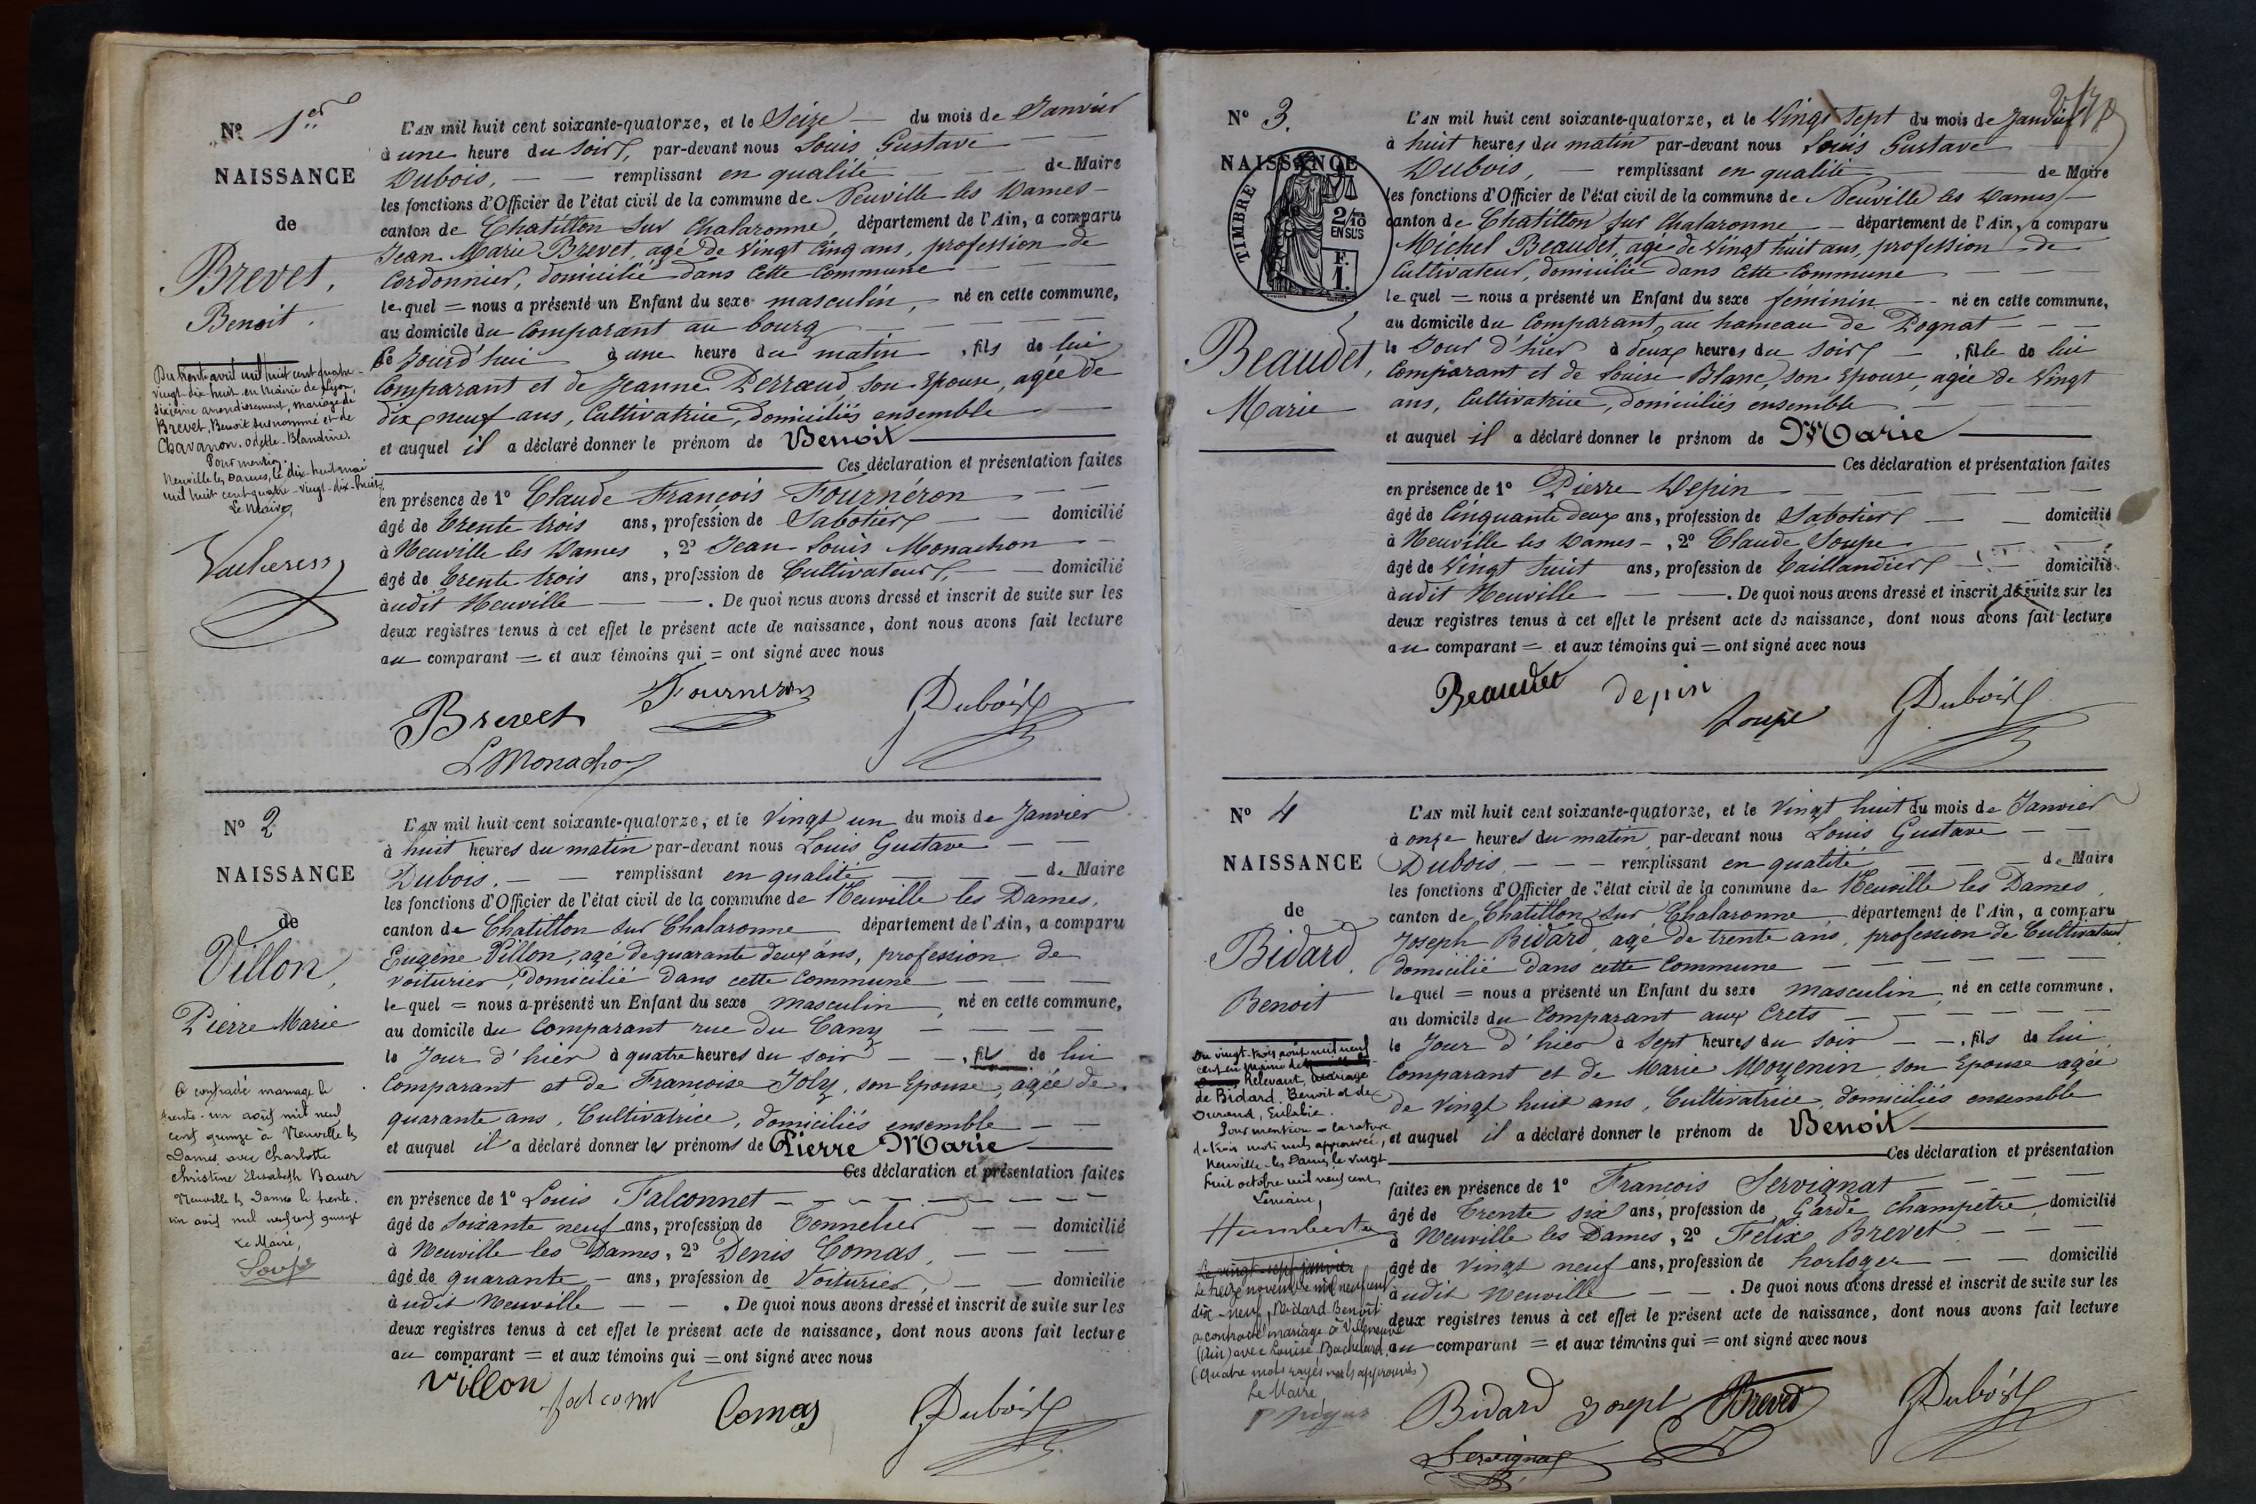 Nº 1er
NAISSANCE
de
Brevet,
Benoit.
Du trente avril mil huit cent quatre-
vingt-dix-huit en mairie de Lyon,
sixième arrondissement, mariage de
Brevet, Benoit susnommé et de
Chavanon. Odette-Blandine.
Pour mention.
Neuville les Dames, le dix-huit mai
mil huit cent quatre-vingt-dix-huit.
Le Maire,
L'AN mil huit cent soixante-quatorze, et le Seize du mois de Janvier
à une heure du soir, par-devant nous Louis Gustave
Dubois, remplissant en qualité de Maire
les fonctions d'Officier de l'état civil de la commune de Neuville les Dames
canton de Chatillon sur Chalaronne, département de l'Ain, a comparu
Jean Marie Brevet, agé de vingt cinq ans, profession de
Cordonnier, domicilié dans cette Commune
lequel = nous a présenté un Enfant du sexe masculin, né en cette commune,
au domicile du Comparant au bourg
Ce Jourd'hui à une heure du matin, fils de lui
Comparant et de Jeanne Perraud, son Epouse, agée de
dix neuf ans, Cultivatrice, domiciliés ensemble
et auquel il a déclaré donner le prénom de Benoit
Ces déclaration et présentation faites
en présence de 1º Claude François Fournéron
âgé de Trente trois ans, profession de Sabotier domicilié
à Neuville les Dames, 2º Jean Louis Monachon
âgé de Trente trois ans, profession de Cultivateur, domicilié
audit Neuville. De quoi nous avons dressé et inscrit de suite sur les
deux registres tenus à cet effet le présent acte de naissance, dont nous avons fait lecture
au comparant = et aux témoins qui = ont signé avec nous
Brevet Fourneron Dubois
L Monachon
Nº 2
NAISSANCE
de
Villon,
Pierre Marie
A contracté mariage le
trente-un août mil neuf
cent quinze à Neuville les
Dames avec Charlotte
Christine Elisabeth Bauer
Neuville les Dames le trente-
un août mil neuf cent quinze
Le Maire,
Soupe
L'AN mil huit cent soixante-quatorze, et le Vingt un du mois de Janvier
à huit heures du matin par-devant nous Louis Gustave
Dubois, remplissant en qualité de Maire
les fonctions d'Officier de l'état civil de la commune de Neuville les Dames,
canton de Chatillon sur Chalaronne département de l'Ain, a comparu
Eugène Villon, agé de quarante deux ans, profession de
voiturier, domicilié dans cette commune
lequel = nous a présenté un Enfant du sexe masculin, né en cette commune,
au domicile du Comparant rue du Cany
le Jour d'hier à quatre heures du soir, fils de lui
Comparant et de Françoise Joly, son Epouse, agée de
quarante ans, Cultivatrice, domiciliés ensemble
et auquel il a déclaré donner les prénoms de Pierre Marie
Ces déclaration et présentation faites
en présence de 1º Louis Falconnet
âgé de soixante neuf ans, profession de Tonnelier domicilié
à Neuville les Dames, 2º Denis Comas,
âgé de quarante ans, profession de Voiturier, domicilié
audit Neuville. De quoi nous avons dressé et inscrit de suite sur les
deux registres tenus à cet effet le présent acte de naissance, dont nous avons fait lecture
au comparant = et aux témoins qui = ont signé avec nous
Villon falconnet Comas Dubois
Nº 3.
NAISSANCE
TIMBRE
2/10
EN SUS
F.
1.
Beaudet,
Marie
L'AN mil huit cent soixante-quatorze, et le Vingt Sept du mois de Janvier
à huit heures du matin par-devant nous Louis Gustave
Dubois, remplissant en qualité de Maire
les fonctions d'Officier de l'état civil de la commune de Neuville les Dames
canton de Chatillon sur Chalaronne département de l'Ain, a comparu
Michel Beaudet, agé de vingt huit ans, profession de
Cultivateur, domicilié dans cette Commune
lequel = nous a présenté un Enfant du sexe féminin né en cette commune,
au domicile du Comparant, au hameau de Pognat
le Jour d'hier à deux heures du soir, fille de lui
Comparant et de Louise Blanc, son Epouse, agée de Vingt
ans, Cultivatrice, domiciliés ensemble
et auquel il a déclaré donner le prénom de Marie
Ces déclaration et présentation faites
en présence de 1º Pierre Depin
âgé de Cinquante deux ans, profession de Sabotier domicilié
à Neuville les Dames, 2º Claude Soupe
âgé de Vingt huit ans, profession de Taillandier domicilié
audit Neuville. De quoi nous avons dressé et inscrit de suite sur les
deux registres tenus à cet effet le présent acte de naissance, dont nous avons fait lecture
au comparant = et aux témoins qui = ont signé avec nous
Beaudet depin Soupe Dubois
Nº 4
NAISSANCE
de
Bidard,
Benoit
Du vingt-trois août mil neuf
cent en mairie de
Relevant, mariage
de Bidard. Benoit et de
Durand, Eulalie.
Pour mention - la rature
de trois mots nuls approuvée,
Neuville-les-Dames, le vingt-
huit octobre mil neuf cent
Le maire,
Humbert
Le vingt-sept janvier
Le treize novembre mil neuf cent
dix-neuf, Bidard Benoît
a contracté mariage à Villeneuve
(Ain) avec Louise Bachelard.
(quatre mots rayés nuls approuvés)
Le Maire
L'AN mil huit cent soixante-quatorze, et le Vingt huit du mois de Janvier
à onze heures du matin par-devant nous Louis Gustave
Dubois remplissant en qualité de Maire
les fonctions d'Officier de l'état civil de la commune de Neuville les Dames,
canton de Chatillon sur Chalaronne département de l'Ain, a comparu
Joseph Bidard, agé de trente ans, profession de Cultivateur,
domicilié dans cette Commune
lequel = nous a présenté un Enfant du sexe masculin né en cette commune,
au domicile du Comparant aux Crets
le Jour d'hier à Sept heures du soir, fils de lui
Comparant et de Marie Moyenin son Epouse agée
de Vingt huit ans, Cultivatrice, domiciliés ensemble
et auquel il a déclaré donner le prénom de Benoit
Ces déclaration et présentation
faites en présence de 1º François Servignat
âgé de Trente six ans, profession de Garde champêtre, domicilié
à Neuville les Dames, 2º Félix Brevet
âgé de vingt neuf ans, profession de horloger domicilié
audit Neuville. De quoi nous avons dressé et inscrit de suite sur les
deux registres tenus à cet effet le présent acte de naissance, dont nous avons fait lecture
au comparant = et aux témoins qui = ont signé avec nous
Bidard Joseph Brevet Dubois
Servignat